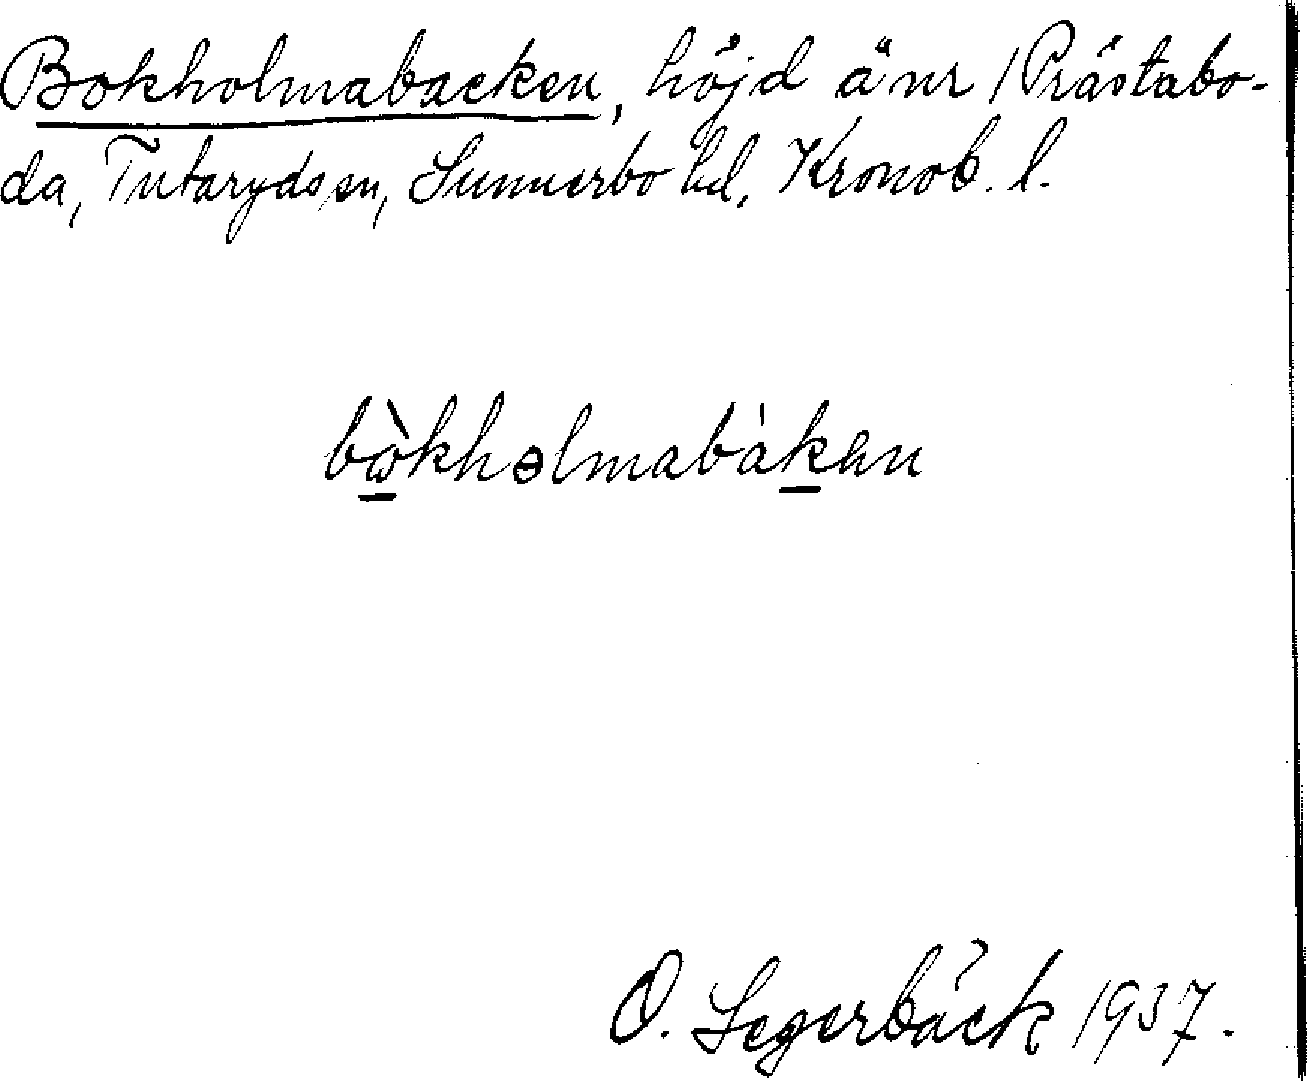 Bokholmabacken, höjd änr 1 Prästabo-
da, Tutaryds sn, Sunnerbo hd, Kronob. l.
bὼ̲khɵlmabàk̲ən
O. Segerbäck 1937.